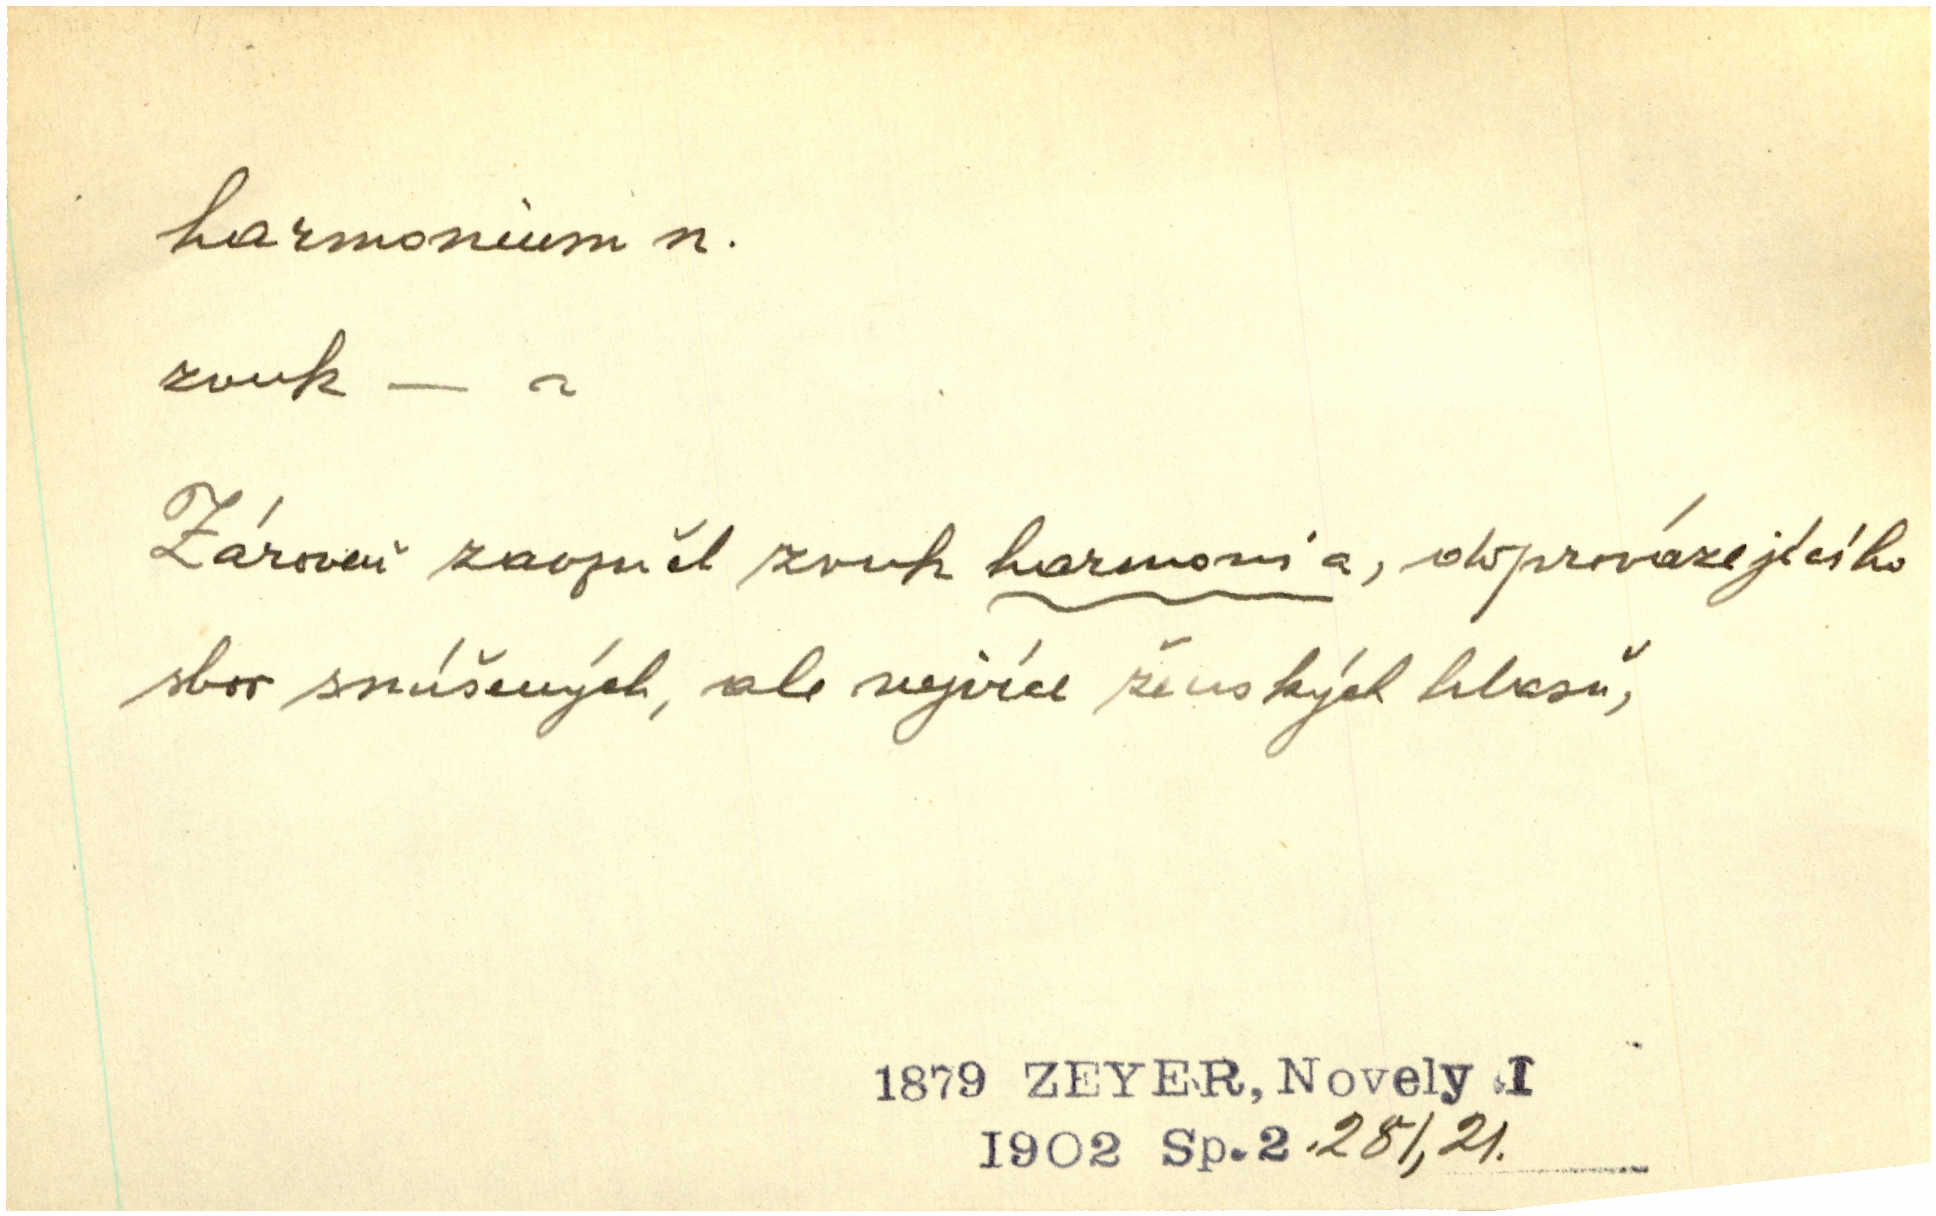 harmonium n.
zvuk — a
Zároveň zavzněl zvuk harmonia, doprovázejícího
sbor smíšených, ale nejvíce ženských hlasů,
1879 ZEYER, Novely I
1902 Sp. 2 . 281, 21.